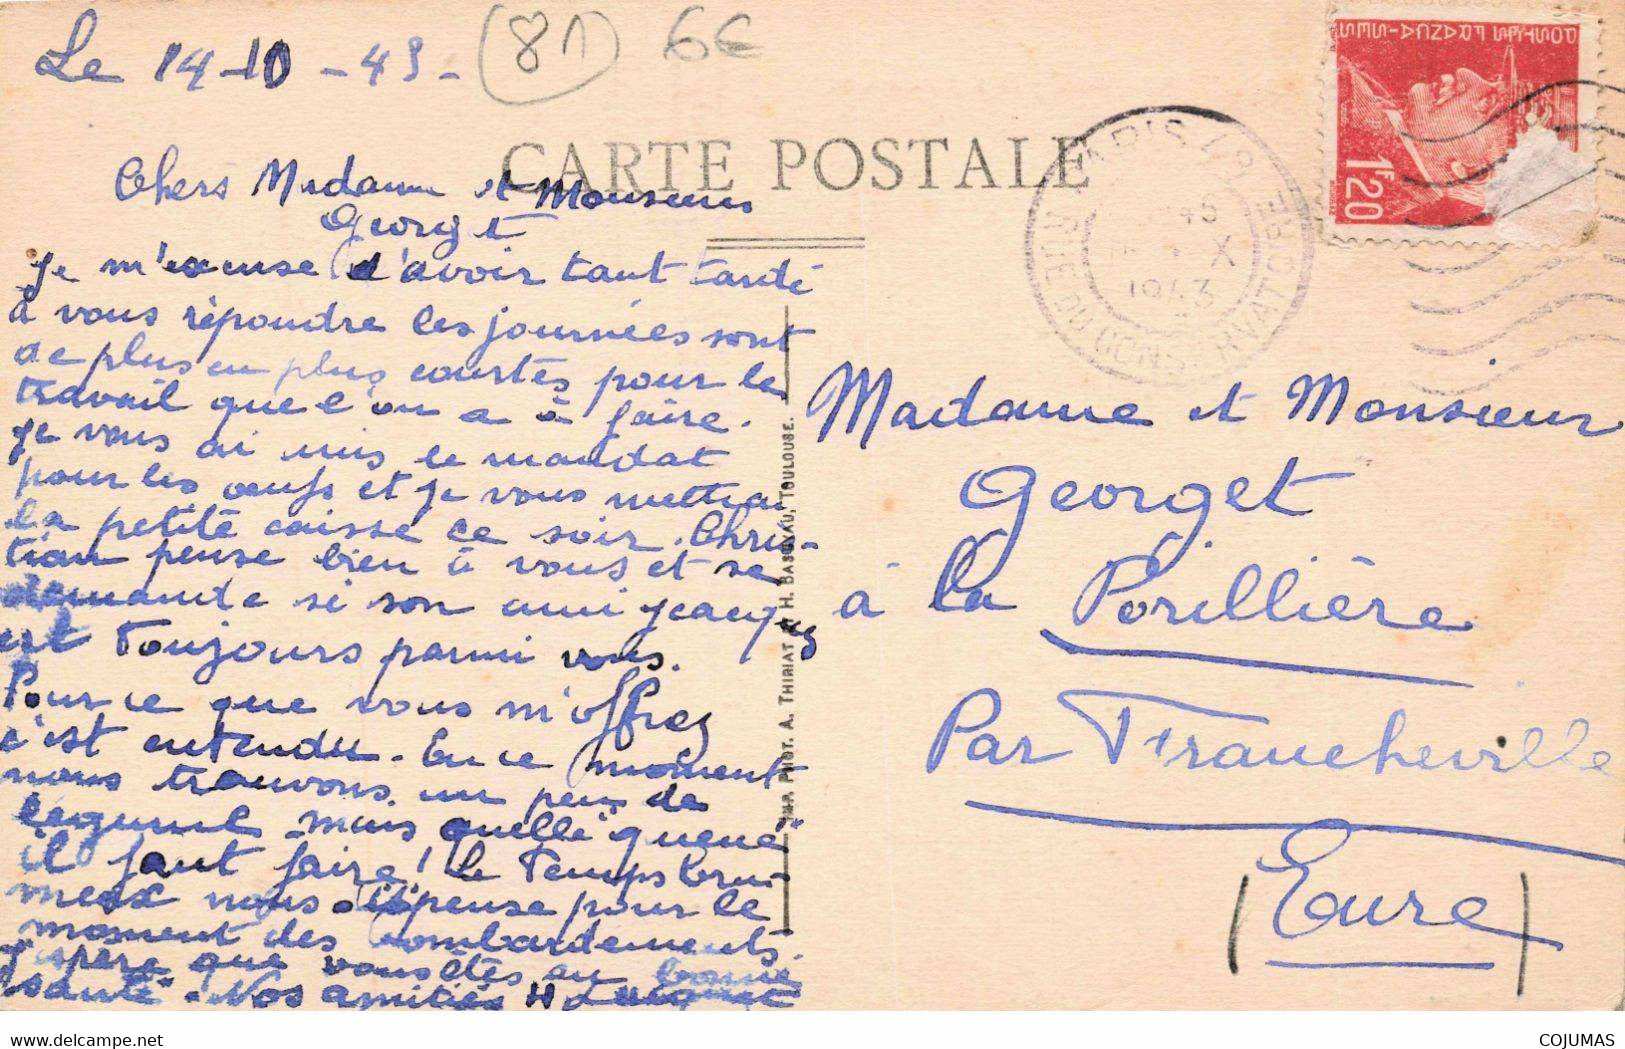 Le 14-10-43-
(81) 6€
CARTE POSTALE
POSTES FRANÇAISES
1F20
PARIS
RUE DU CONSERVATOIRE
X
1943
Chers Madame et Monsieur
Georget
Je m'excuse d'avoir tant tardé
à vous répondre les journées sont
de plus en plus courtes pour le
travail que l'on a à faire.
Je vous ai mis le mandat
pour les œufs et je vous mettrai
la petite caisse ce soir. Chris-
tian pense bien à vous et se
demande si son ami Jeacques
est toujours parmi vous.
Pour ce que vous m'offrez
c'est entendu. En ce moment
nous trouvons un peu de
mais quelle "queue"
il faut faire! Le Temps bru-
meux nous dispense pour le
moment des bombardements.
J'espère que vous êtes en bonne
santé. Nos amitiés H
Madame et Monsieur
Georget
à la Porillière
Par Francheville
(Eure)
IMP. PHOT. A. THIRIAT ET H. BASUYAU, TOULOUSE.
COJUMAS